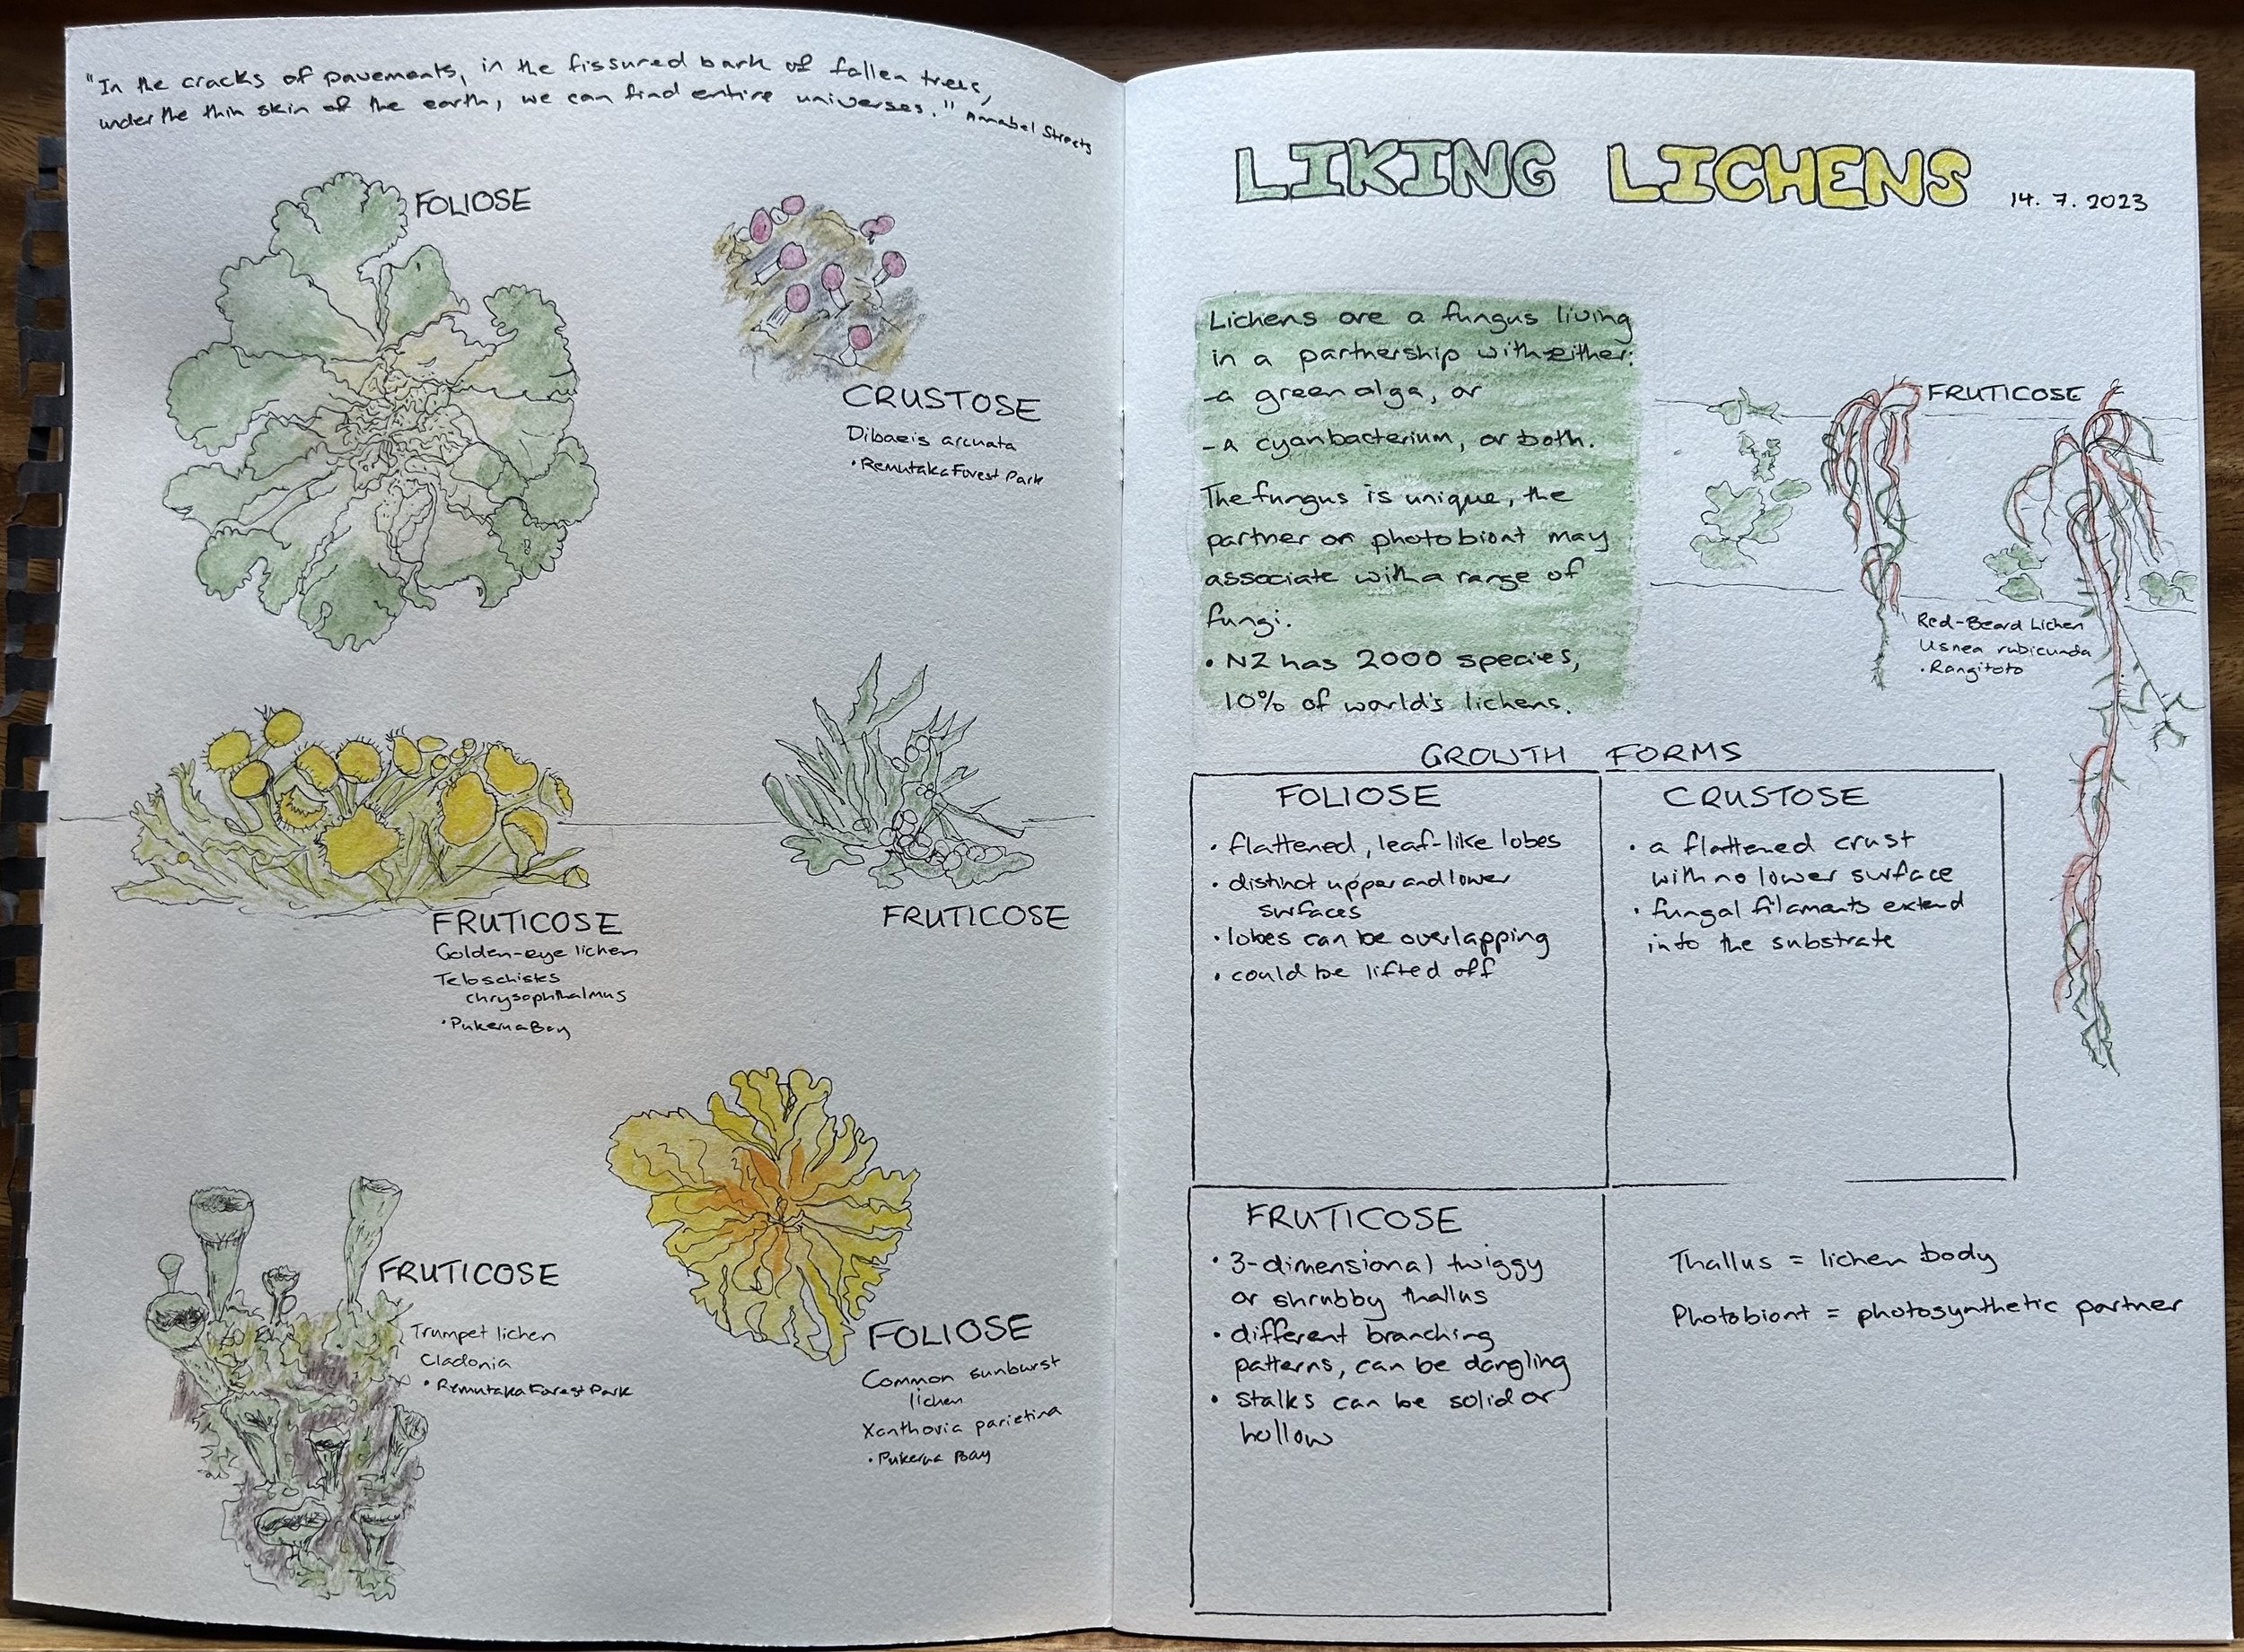 "In the cracks of pavements, in the fissured bark of fallen trees,
under the thin skin of the earth, we can find entire universes." Annabel Streets
FOLIOSE
CRUSTOSE
Dibaeis arcuata
• Remutaka Forest Park
FRUTICOSE
Golden-eye lichen
Teloschistes
chrysophthalmus
• Pukerua Bay
FRUTICOSE
FRUTICOSE
Trumpet lichen
Cladonia
• Remutaka Forest Park
FOLIOSE
Common sunburst
lichen
Xanthoria parietina
• Pukerua Bay
LIKING LICHENS 14. 7. 2023
Lichens are a fungus living
in a partnership with either:
- a green alga, or
- a cyanbacterium, or both.
The fungus is unique, the
partner or photobiont may
associate with a range of
fungi.
• NZ has 2000 species,
10% of world's lichens.
FRUTICOSE
Red-Beard Lichen
Usnea rubicunda
• Rangitoto
GROWTH FORMS
FOLIOSE
• flattened, leaf-like lobes
• distinct upper and lower
surfaces
• lobes can be overlapping
• could be lifted off
CRUSTOSE
• a flattened crust
with no lower surface
• fungal filaments extend
into the substrate
FRUTICOSE
• 3-dimensional twiggy
or shrubby thallus
• different branching
patterns, can be dangling
• stalks can be solid or
hollow
Thallus = lichen body
Photobiont = photosynthetic partner